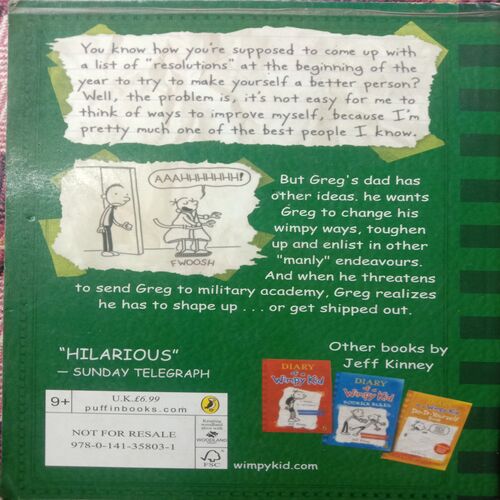 You know how you're supposed to come up with
a list of "resolutions" at the beginning of the
year to try to make yourself a better person?
Well, the problem is, it's not easy for me to
think of ways to improve myself, because I'm
pretty much one of the best people I know.
AAAHHHHHHH!
FWOOSH
But Greg's dad has
other ideas. he wants
Greg to change his
wimpy ways, toughen
up and enlist in other
"manly" endeavours.
And when he threatens
to send Greg to military academy, Greg realizes
he has to shape up . . . or get shipped out.
"HILARIOUS"
— SUNDAY TELEGRAPH
Other books by
Jeff Kinney
DIARY
of a
Wimpy Kid
DIARY
of a
Wimpy Kid
RODRICK RULES
Do-It-Yourself
9+
U.K.£6.99
puffinbooks.com
NOT FOR RESALE
978-0-141-35803-1
Keeping
WOODLAND
FSC
wimpykid.com